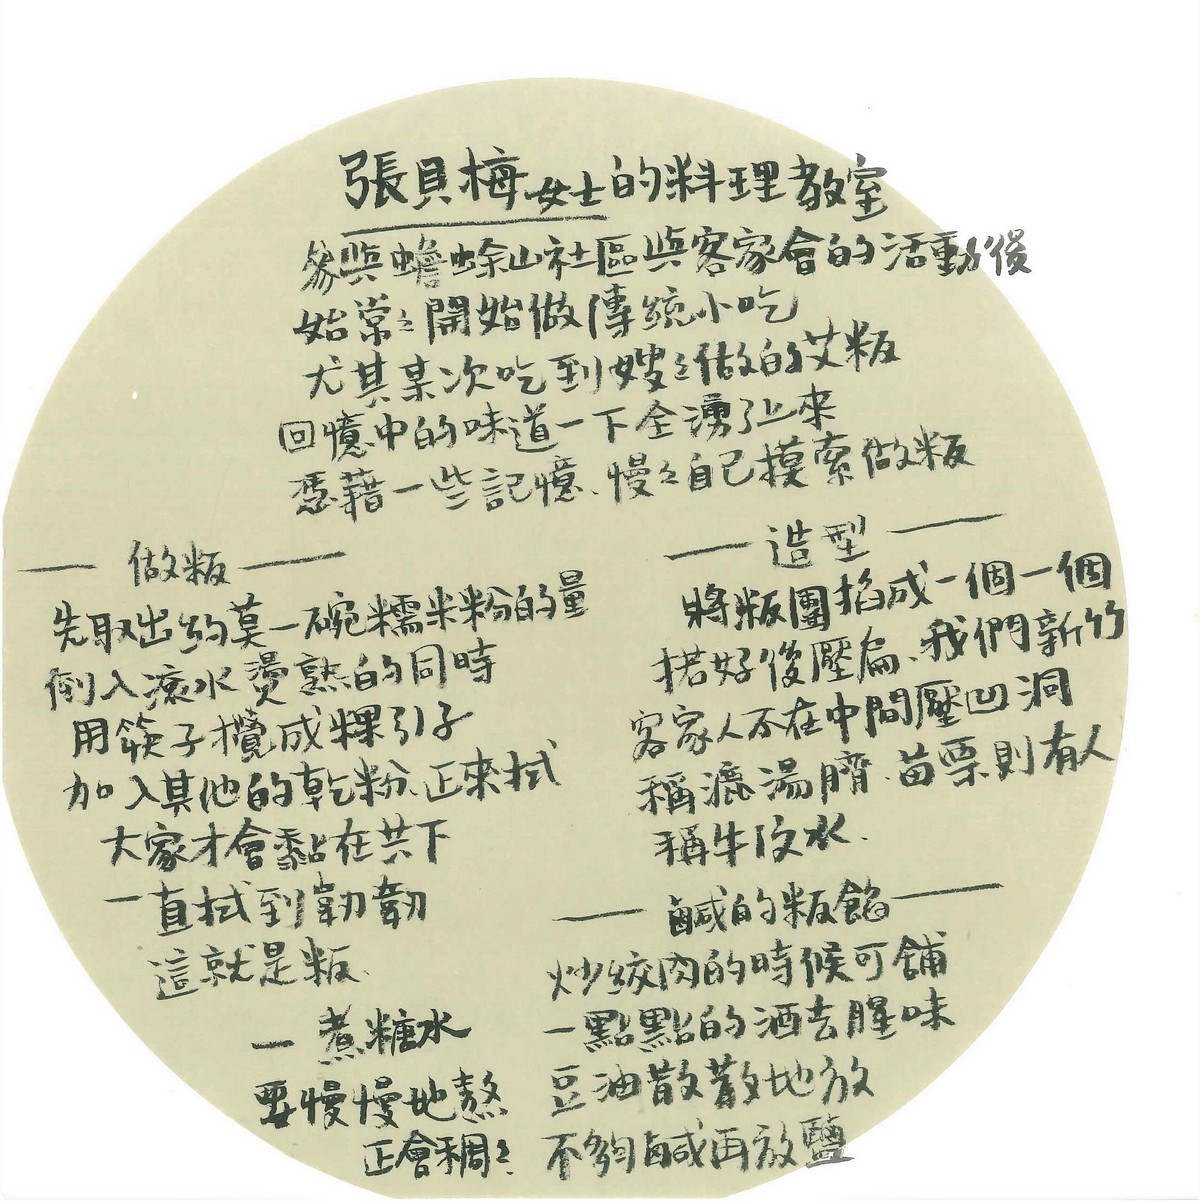 張貝梅女士的料理教室
參與蟾蜍山社區與客家會的活動後
始常々開始做傳統小吃
尤其某次吃到嫂々做的艾粄
回憶中的味道一下全湧了上來
憑藉一些記憶、慢々自己摸索做粄
做粄
先取出約莫一碗糯米粉的量
倒入滾水燙熟的同時
用筷子攪成粿引子
加入其他的乾粉、正來拭
大家才會黏在共下
一直拭到韌韌
這就是粄
煮糖水
要慢慢地熬
正會稠々
造型
將粄團掐成一個一個
搭好後壓扁、我們新竹
客家人不在中間壓凹洞
稱漉湯臍、苗栗則有人
稱牛汶水、
鹹的粄餡
炒絞肉的時候可舖
一點點的酒去腥味
豆油散散地放
不夠鹹再放鹽